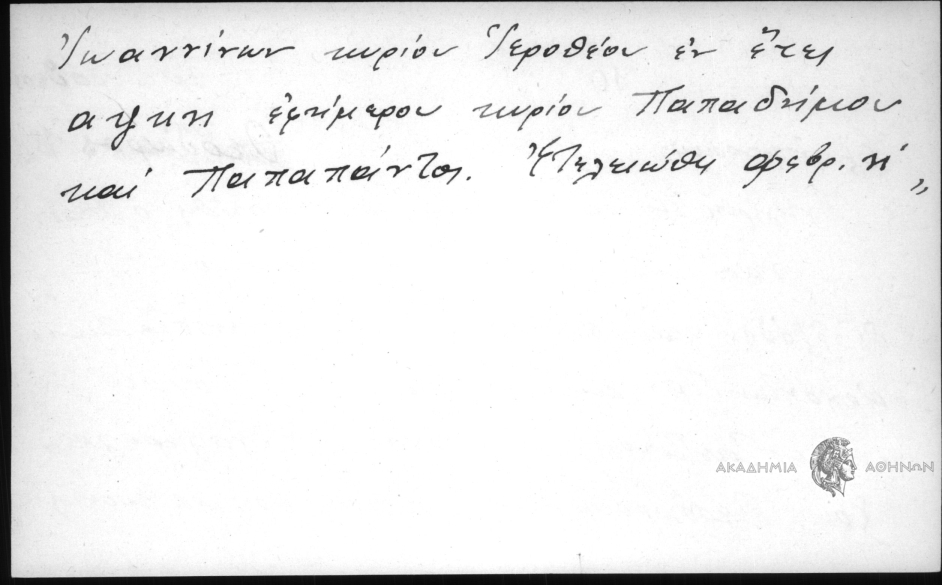 Ἰωαννίνων κυρίου Ἱεροθέου ἐν ἔτει
αψκη ἐφημερου κυρίου Παπαδήμου
καὶ Παπαπάντου. Ἐτελειώθη φεβρ. η΄ „
ΑΚΑΔΗΜΙΑ ΑΘΗΝΩΝ